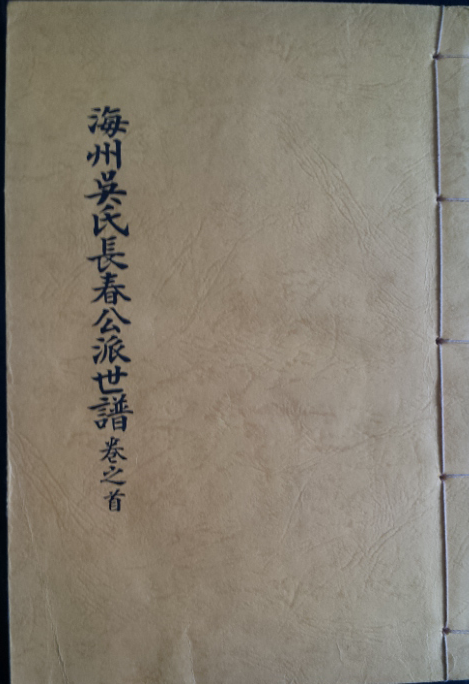 海州吳氏長春公派世譜 卷之首